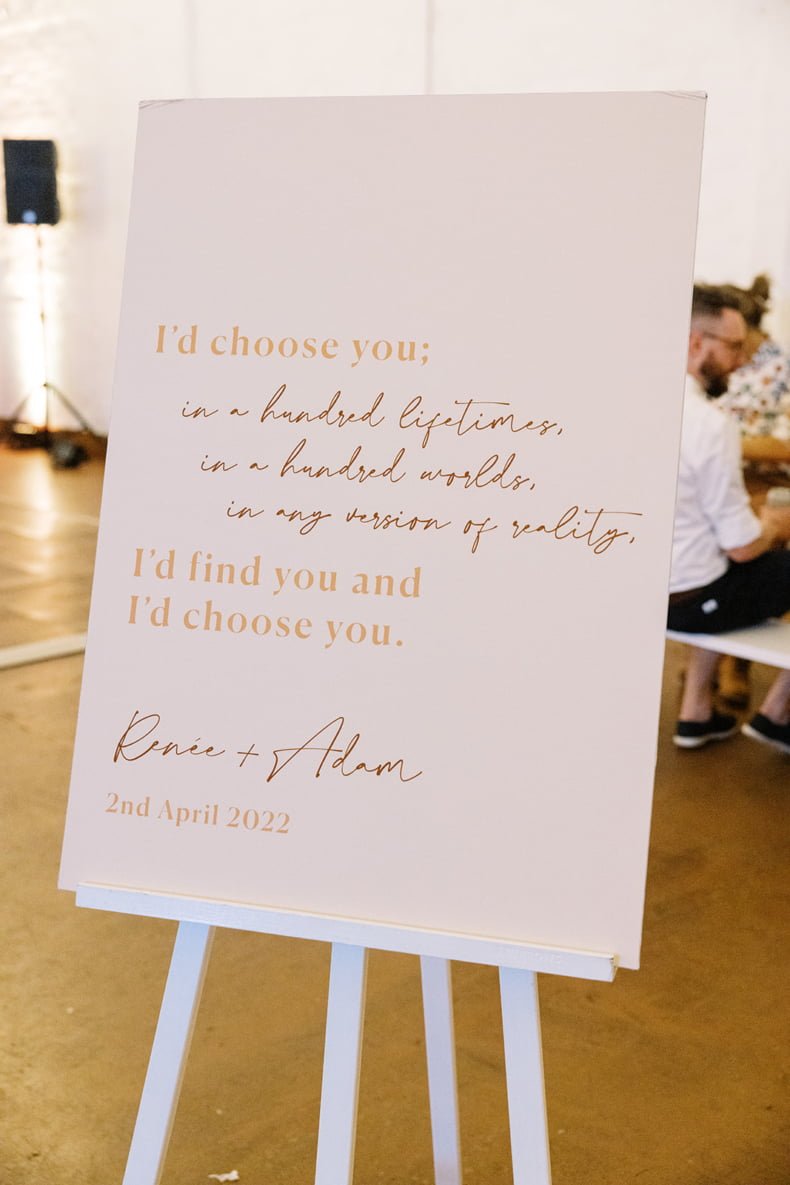 I'd choose you;
in a hundred lifetimes,
in a hundred worlds,
in any version of reality,
I'd find you and
I'd choose you.
Renée + Adam
2nd April 2022